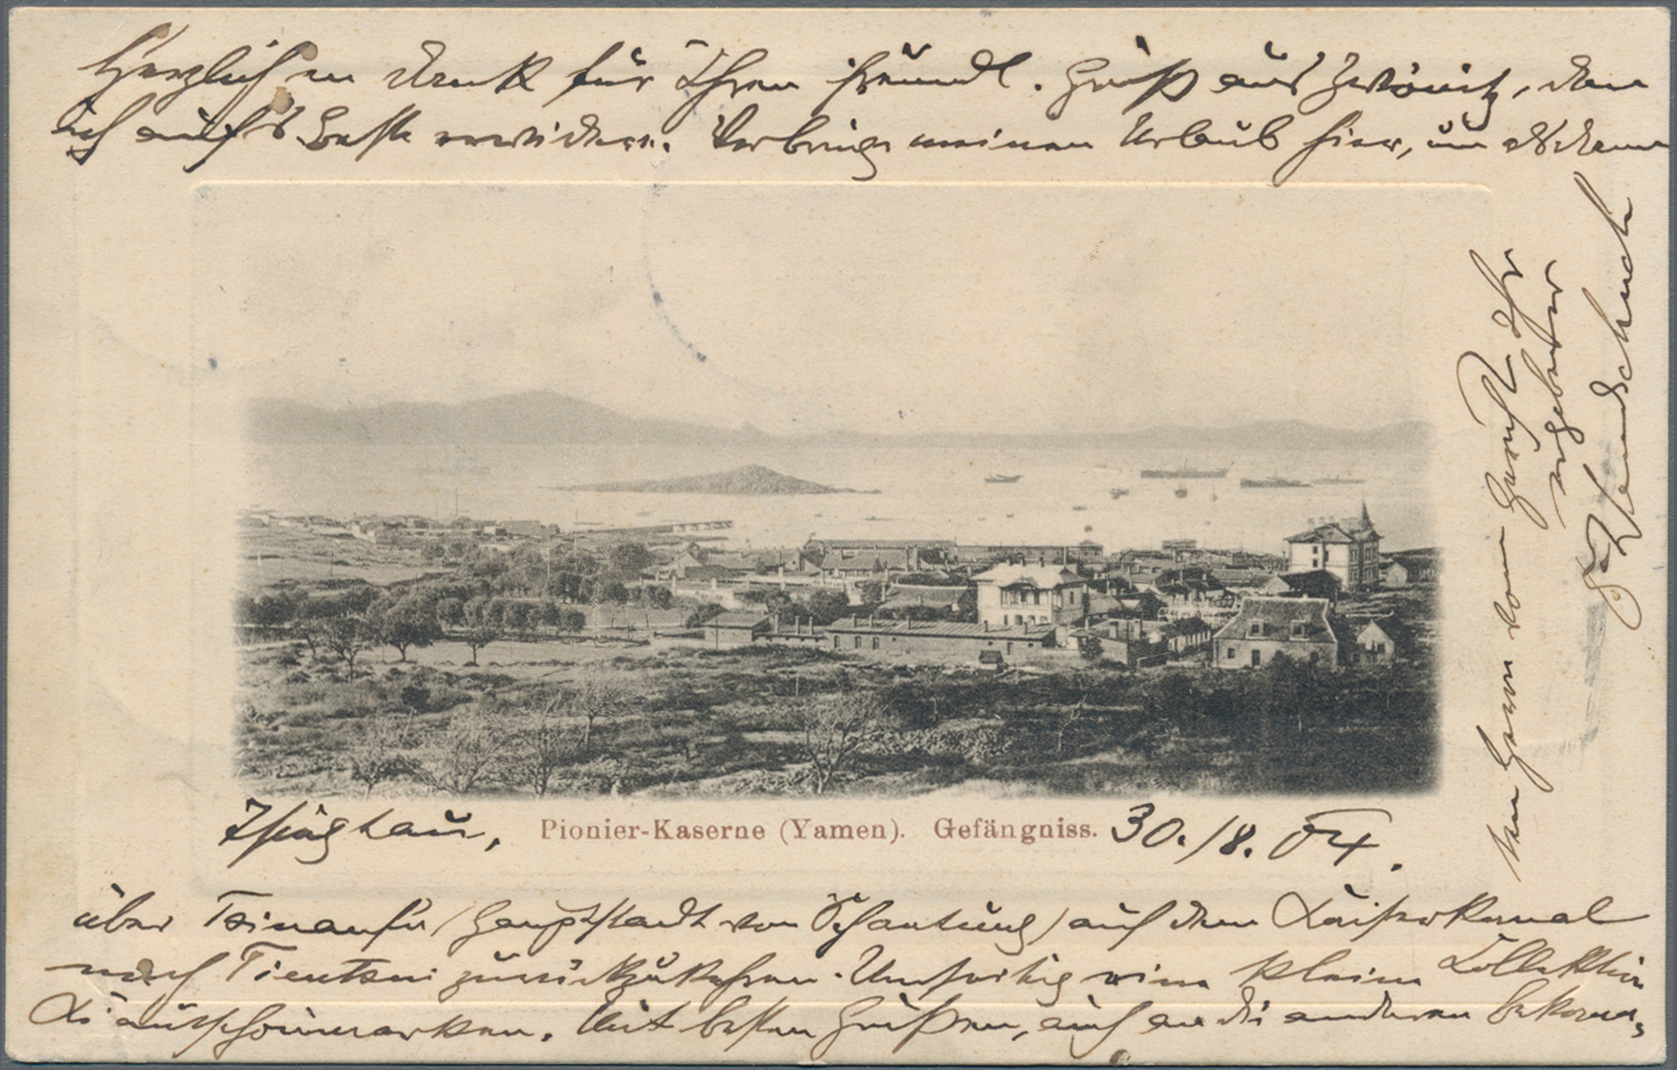 Herzlichen Dank für Ihren freundl. Gruß aus Zwönitz, den
ich auf's Beste erwidere. Verbringe meinen Urlaub hier, um alsdann
Tsingtau, Pionier-Kaserne (Yamen). Gefängniss. 30./8. 04.
über Tsinanfu (Hauptstadt von Schantung) auf dem Kaiserkanal
nach Tientsin zurückzukehren. Umseitig eine kleine Kollektion
Kiautschoumarken. Mit besten Grüßen, auch an die anderen
Herren vom Ihr
ergebener